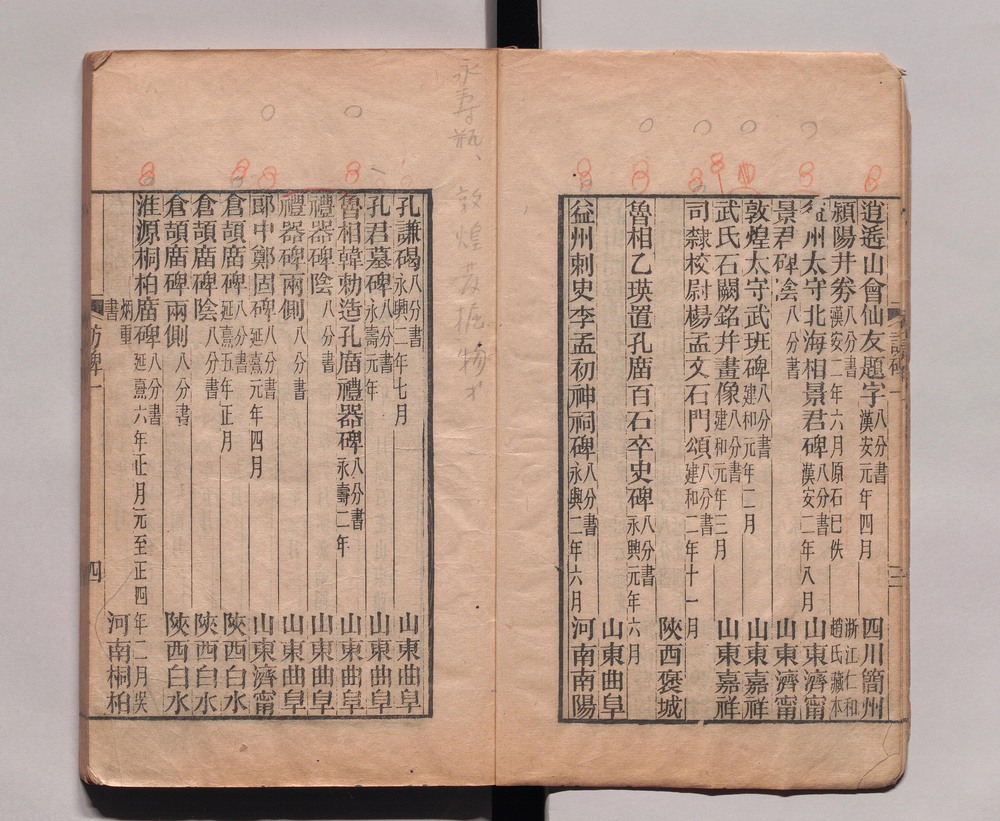 逍遙山會仙友題字 八分書 漢安元年四月 四川簡州
潁陽井劵 八分書 漢安二年六月原石已佚 浙江仁和趙氏藏本
州太守北海相景君碑 八分書 漢安二年八月 山東濟甯
景君碑陰 八分書 山東濟甯
敦煌太守武班碑 八分書 建和元年二月 山東嘉祥
武氏石闕銘幷畫像 八分書 建和元年三月 山東嘉祥
司隸校尉楊孟文石門頌 八分書 建和二年十一月 陝西褒城
魯相乙瑛置孔廟百石卒史碑 八分書 永興元年六月 山東曲阜
益州刺史李孟初神祠碑 八分書 永興二年六月 河南南陽
三
永壽瓶、敦煌發掘物
孔謙碣 八分書 永興二年七月 山東曲阜
孔君墓碑 八分書 永壽元年 山東曲阜
魯相韓勑造孔廟禮器碑 八分書 永壽二年 山東曲阜
禮器碑陰 八分書 山東曲阜
禮器碑兩側 八分書 山東曲阜
郎中鄭固碑 八分書 延熹元年四月 山東濟甯
倉頡廟碑 八分書 延熹五年正月 陝西白水
倉頡廟碑陰 八分書 陝西白水
倉頡廟碑兩側 八分書 陝西白水
淮源桐柏廟碑 八分書 延熹六年正月元至正四年二月吳炳重書 河南桐柏
訪碑一
四